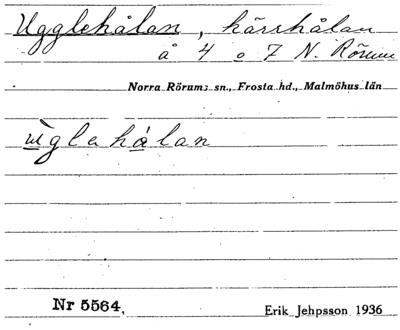 Ugglehålan, kärrhålan
å 4 o 7 N. Rörum
Norra Rörums sn., Frosta hd., Malmöhus län
ùglahålan
Nr 5564.
Erik Jehpsson 1936